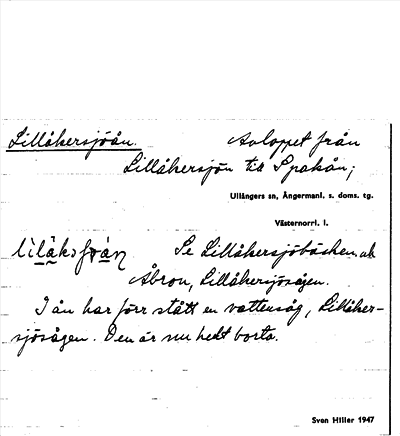 Lillåkersjöån. Avloppet från
Lillåkersjön till Spakån;
Ullångers sn, Ångermanl. s. doms. tg.
Västernorrl. l.
Se Lillåkersjöbäcken,
Åbron, Lillåkersjösågen.
I ån har förr stått en vattensåg, Lillåker-
sjösågen. Den är nu helt borta.
Sven Hiller 1947